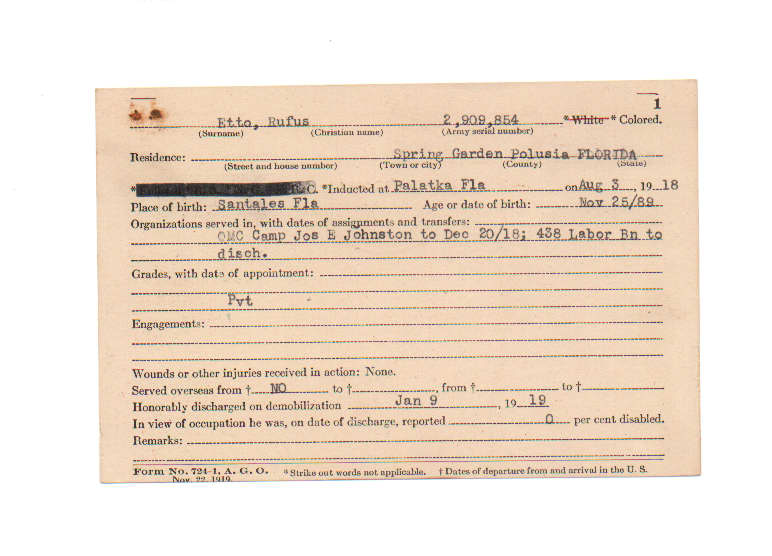 1
Etto, Rufus 2,909,854 *White * Colored.
(Surname) (Christian name) (Army serial number)
Residence: Spring Garden Polusia FLORIDA
(Street and house number) (Town or city) (County) (State)
* R. C. *Inducted at Palatka Fla on Aug 3, 1918
Place of birth: Santales Fla Age or date of birth: Nov 25/89
Organizations served in, with dates of assignments and transfers:
QMC Camp Jos E Johnston to Dec 20/18; 438 Labor Bn to
disch.
Grades, with date of appointment:
Pvt
Engagements:
Wounds or other injuries received in action: None.
Served overseas from † NO to †, from † to †
Honorably discharged on demobilization Jan 9, 19 19
In view of occupation he was, on date of discharge, reported 0 per cent disabled.
Remarks:
Form No. 724-1, A. G. O. *Strike out words not applicable. † Dates of departure from and arrival in the U. S.
Nov. 22, 1919.